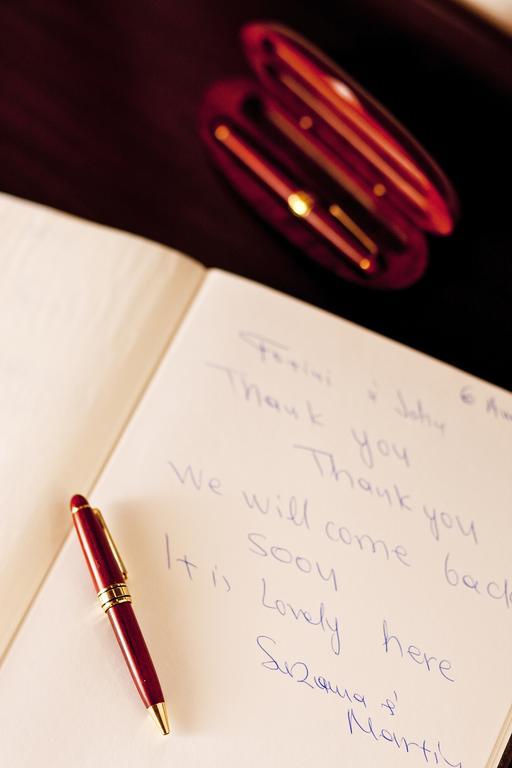 & John
6 Au
Thank you
Thank you
We will come back
soon
It is Lovely here
Suzana &
Martin